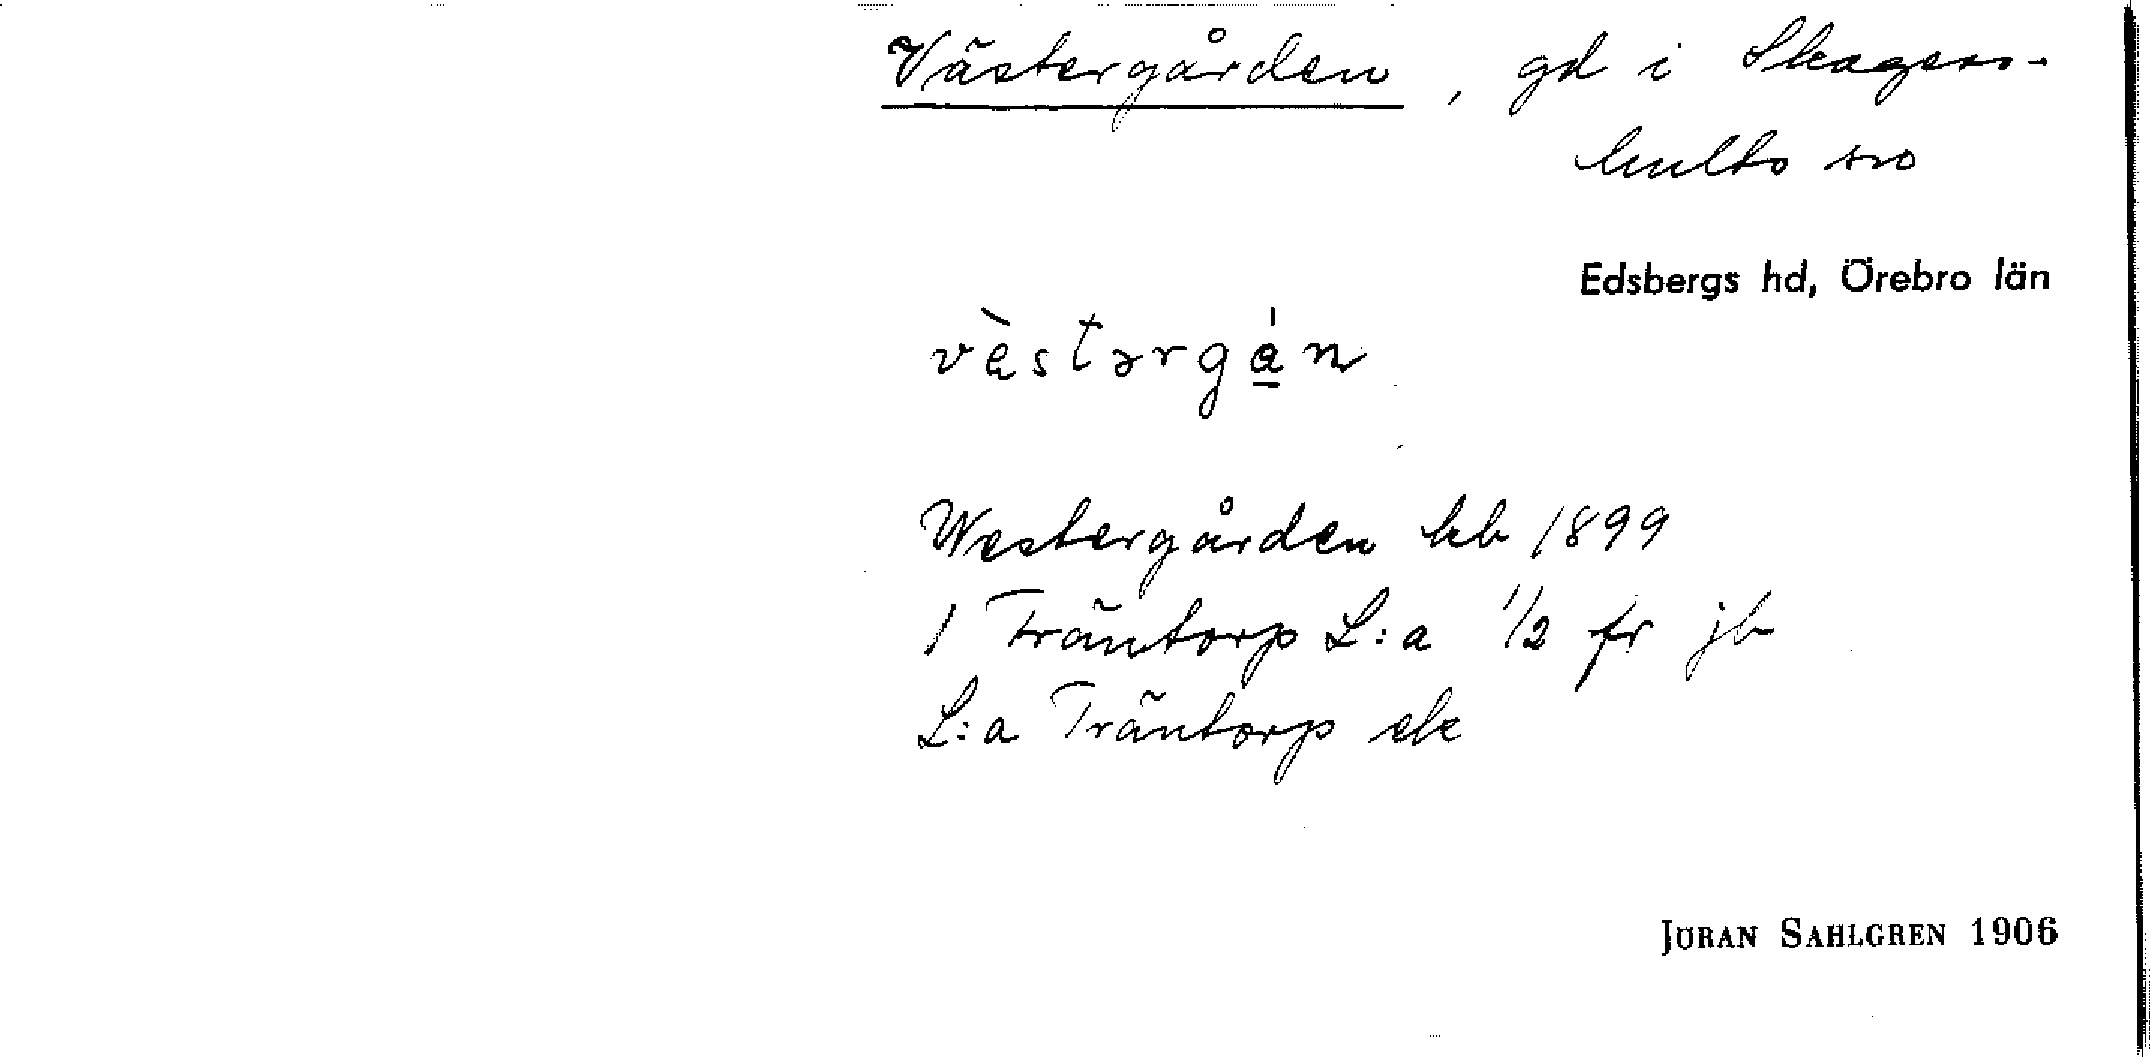 Västergården, gd i Skagers-
hults sn
Edsbergs hd, Örebro län
vèstərgá̱n
Westergården kb 1899
1 Träntorp L:a 1/2 fr jb
L:a Träntorp ek
JÖRAN SAHLGREN 1906